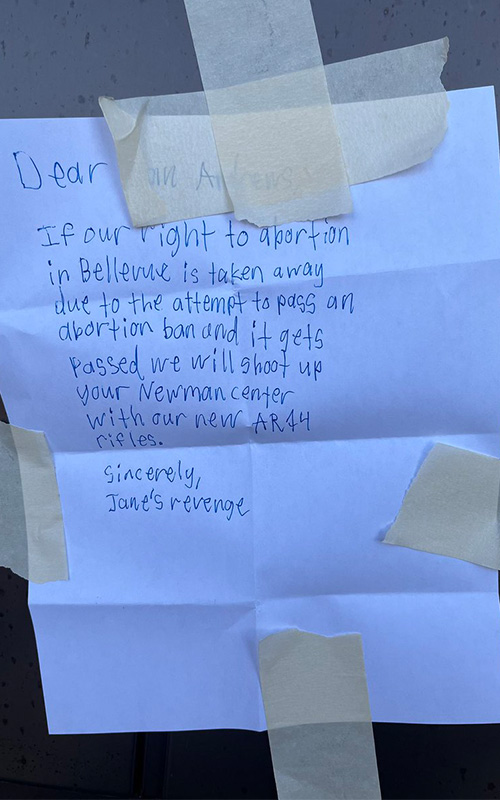 Dear
If our right to abortion
in Bellevue is taken away
due to the attempt to pass an
abortion ban and it gets
passed we will shoot up
your Newman center
with our new AR14
rifles.
Sincerely,
Jane's revenge